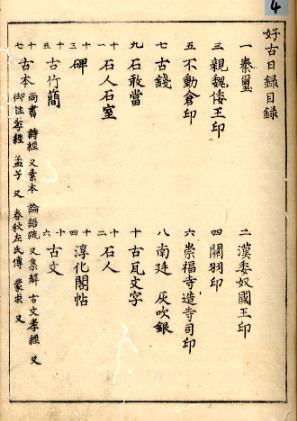 4
好古日録目録
一 秦璽 二 漢委奴國王印
三 親魏倭王印 四 關羽印
五 不動倉印 六 崇福寺造寺司印
七 古錢 八 南廷 灰吹銀
九 石敢當 十 古瓦文字
十一 石人石室 十二 石人
十三 碑 十四 淳化閣帖
十五 古竹簡 十六 古文
十七 古本 尚書 詩經 又素本 論語疏 又集解 古文孝經 又
御注孝經 孟子 又 春秋左氏傳 蒙求 又